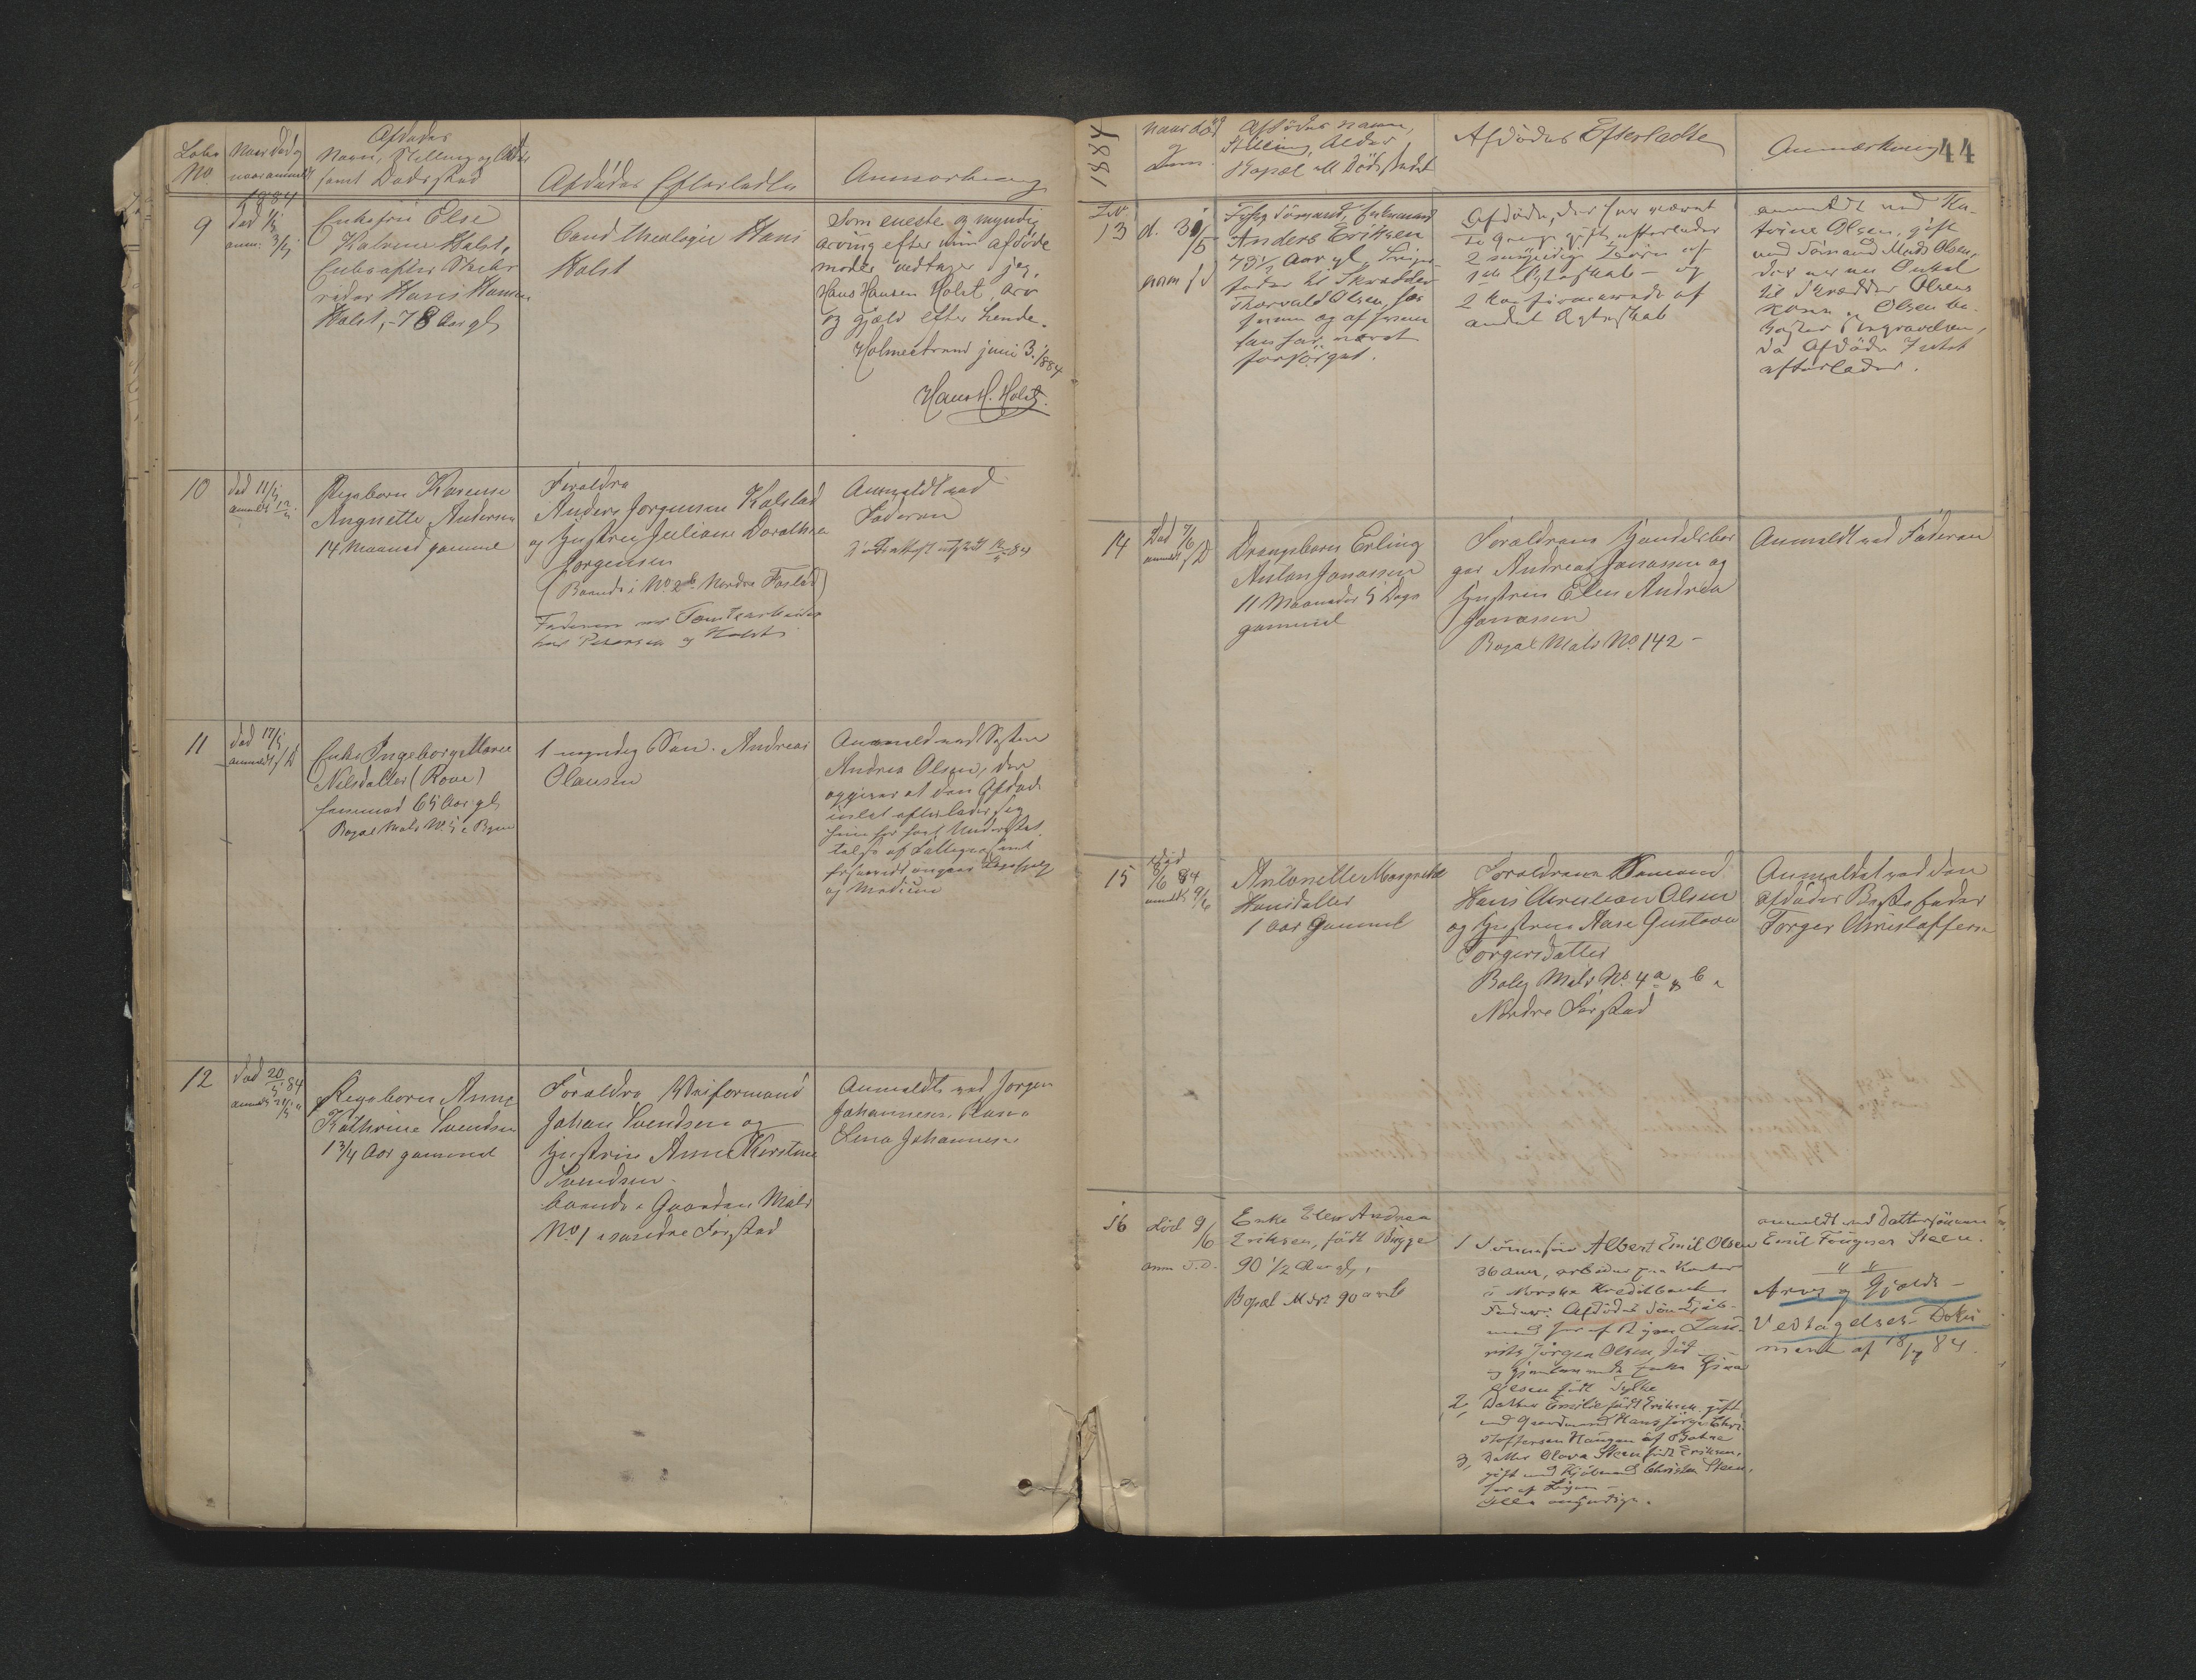 Løbe
No.
Naar død og
naar anmeldt
1884
Afdødes
Navn, Stilling og Alder
samt Dødssted
Afdødes Efterladte
Anmærkning
9
død 1/5
anm. 3/5
Enkefru Else
Katrine Holst,
Enke efter
Hans Hansen
Holst, 78 Aar gl
Cand theologie Hans
Holst
Som eneste og myndig
arving efter min afdøde
moder vedtager jeg,
Hans Hansen Holst, arv
og gjæld efter hende.
Holmestrand juni 3. 1884
Hans H. Holst.
10
død 11/5
anmeldt 12/5
Pigebarn Karense
Angnette Andersen
14 Maaned gammel
Forældre
Anders Jørgensen Kalstad
og Hustru Juliane Dorathea
Jørgensen
(Boende i No 2b Nordre Forstad)
Faderen var Tomtearbeider
hos Petersen og Holst
Anmeldt ved
Faderen
Dødsattest udstedt 12/5 84
11
død 17/5
anmeldt s D
Enke Ingeborg Marie
Nilsdatter (Rove)
65 Aar gl
Bopæl Matr No. 5 i Byen
1 myndig Søn. Andreas
Olausen
Anmeldt ved Søsteren
Andrea Olsen, der
opgiver at den Afdøde
intet efterlader sig
hun har havt Understøt
telse af Fattigvæsenet
og Medicin
12
død 20/5 84
anmeldt 21/5
Pigebarn Anne
Kathrine Svendsen
1 3/4 Aar gammel
Forældre
Johan Svendsen og
Hustru Anne Kirstine
Svendsen.
boende i Gaarden Matr
No 1 i søndre Forstad
Anmeldt ved Jørgen
Johannesens Kone
Lina Johannesen
1884
44
Naar død
og
Anm.
Afdødes Navn,
Stilling, Alder
Bopæl ell Dødsstedet
Afdødes Efterladte
Anmærkning
13
d. 31/5
anm s d
Anders Eriksen
73½ Aar gl,
fader til Skrædder
Thorvald Olsen, hos
hvem og af hvem
han har været
forsørget.
Afdøde, der har været
to Gange gift, efterlader
2 myndige Børn af
1ste Ægteskab – og
2 konfirmerede af
andet Ægteskab
anmeldt ved Ka-
trine Olsen, gift
med Sømand Mads Olsen,
der er en Onkel
til Skrædder Olsens
Kone. Olsen be-
koster Begravelsen,
da Afdøde Intet
efterlader.
14
Død 7/6
anmeldt s D
Drengebarn Erling
Anton Jonassen
11 Maaneder 5 Dage
gammel
Forældrene Handelsbor
ger Andreas Jonassen og
Hustru Elen Andrea
Jonassen
Bopæl Matr No. 142 –
Anmeldt ved Faderen
15
død
8/6 84
anmeldt 9/6
Antonette Margrethe
Hansdatter
1 Aar gammel
Forældrene Sømand
Hans Christian Olsen
og Hustru Aase Gustava
Torgersdatter
Bolig Matr No. 4a & b i
Nordre Forstad
Anmeldet ved den
afdødes Bestefader
Torger Christoffersen
16
død 9/6
anm s. D.
Enke Elen Andrea
Eriksen, født Brygge
90 1/2 Aar gl,
Bopæl Matr 90 a & b
1 Sønnesøn Albert Emil Olsen
36 Aar, arbeider paa Kontor
i Norske Kreditbank
Faderen: Afdødes Søn Kjøb-
mand her af Byen
Jørgen Olsen, død
og gjenlevende Enke Gina
Olsen født
2, Datter Emilie født Eriksen, gift
med Gaardmand Hans Jørgen Chri-
stoffersen Haugen af Botne
3, Datter Olava Steen født Eriksen,
gift med Kjøbmand Christen Steen,
her af Byen –
Alle myndige.
anmeldt ved Dattersønnen
Emil Fougner Steen.
" "
Arvs og Gjælds-
Vedtagelses-Doku
ment af 18/7 84.